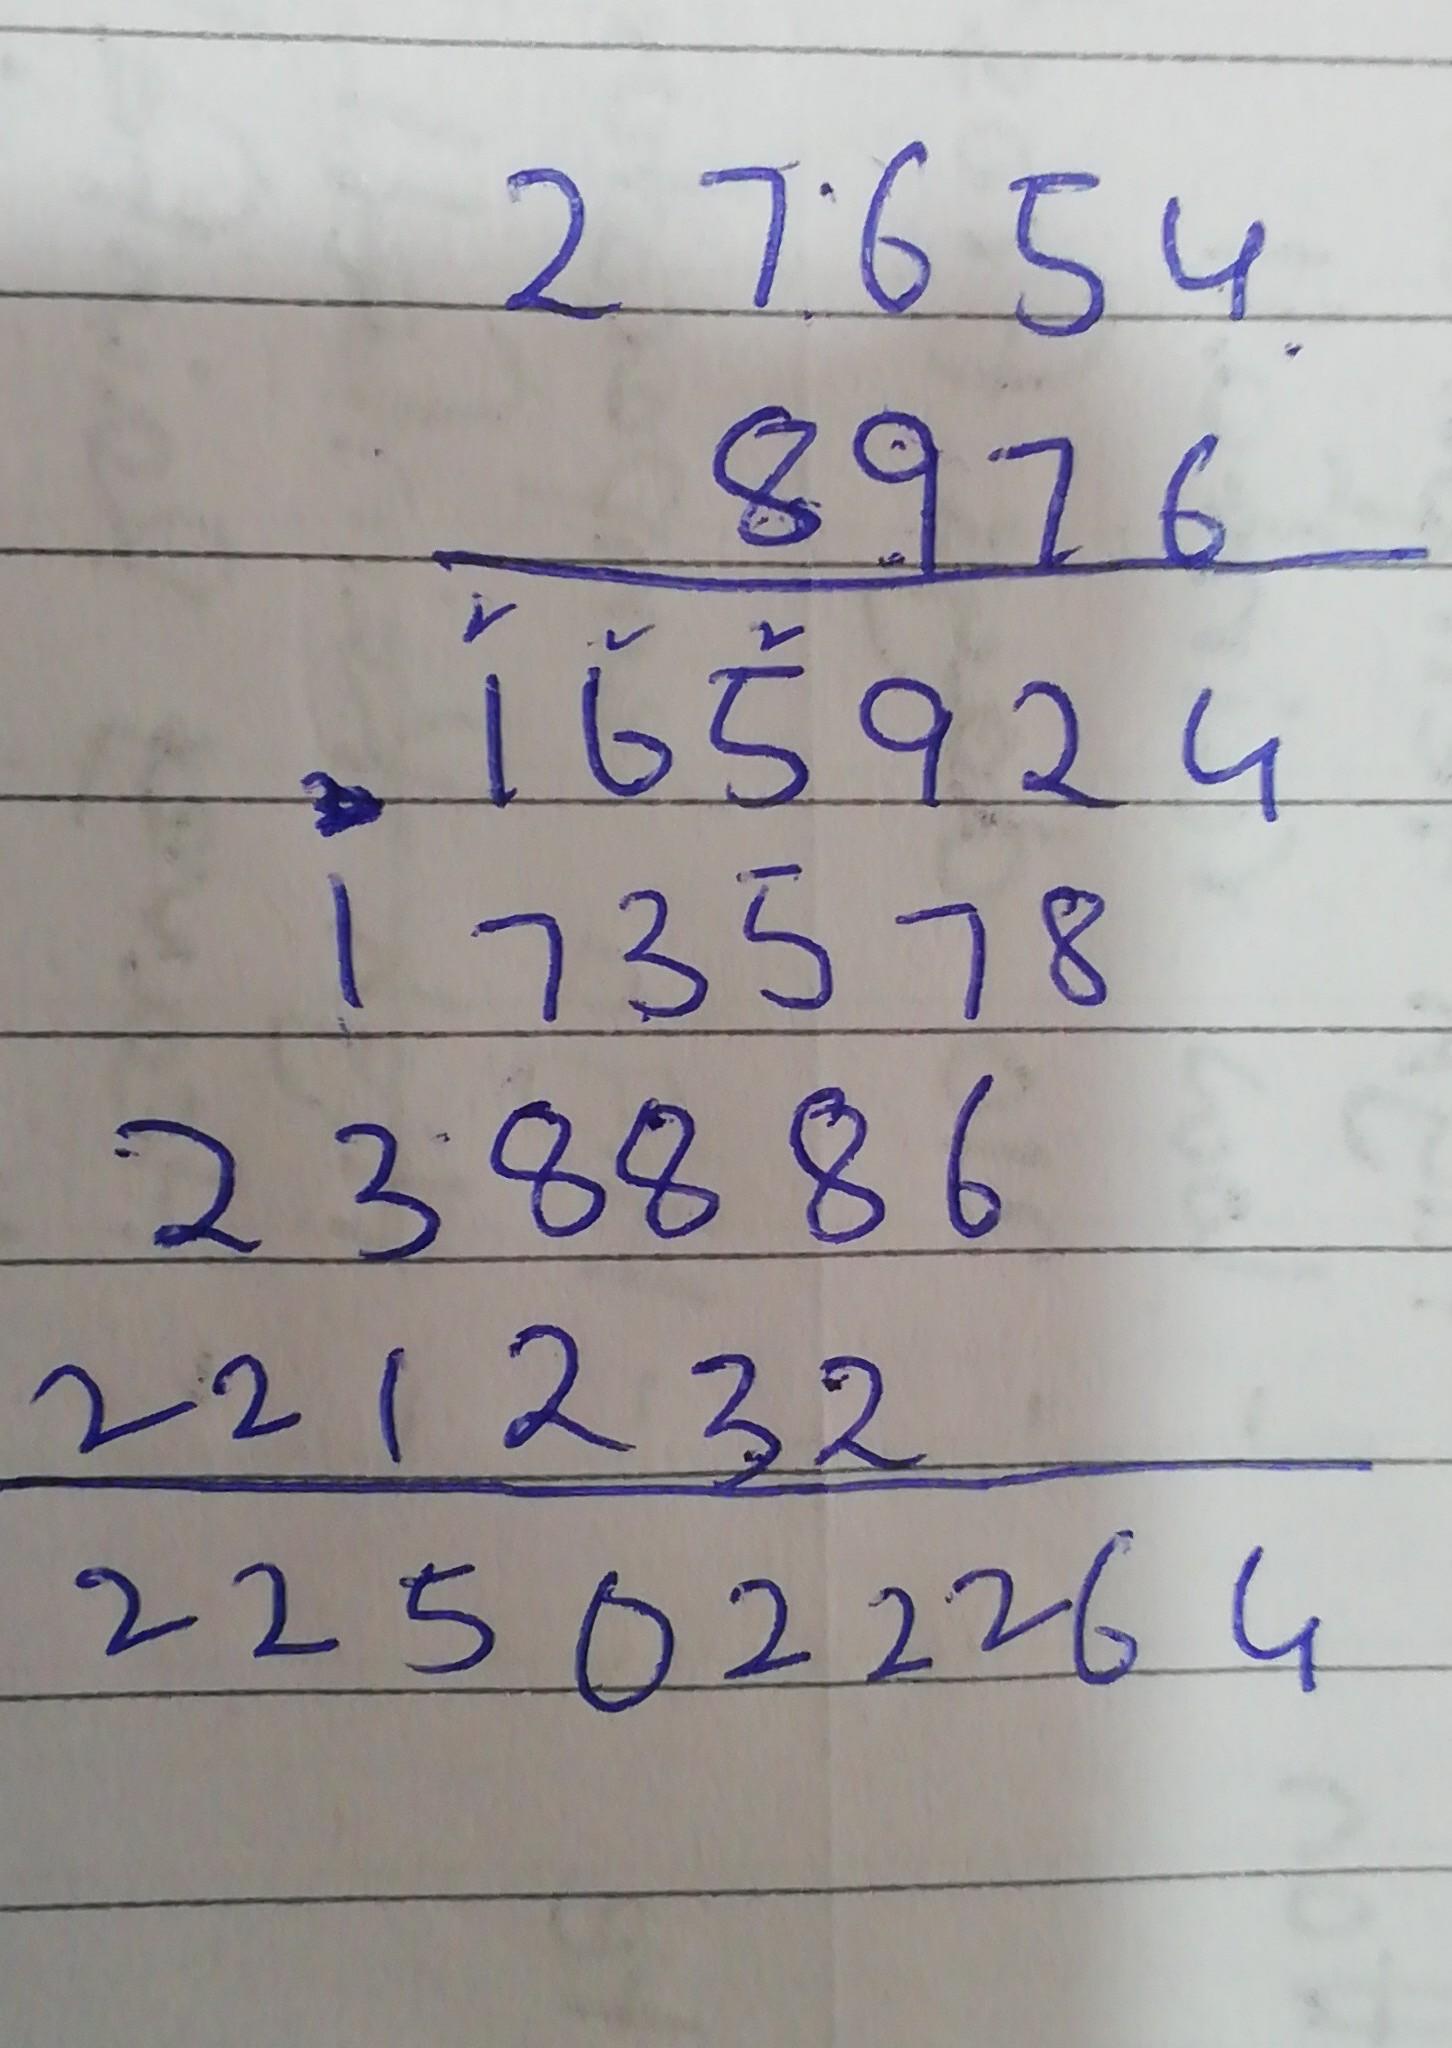 27654
8976
165924
173578
238886
221232
225022264